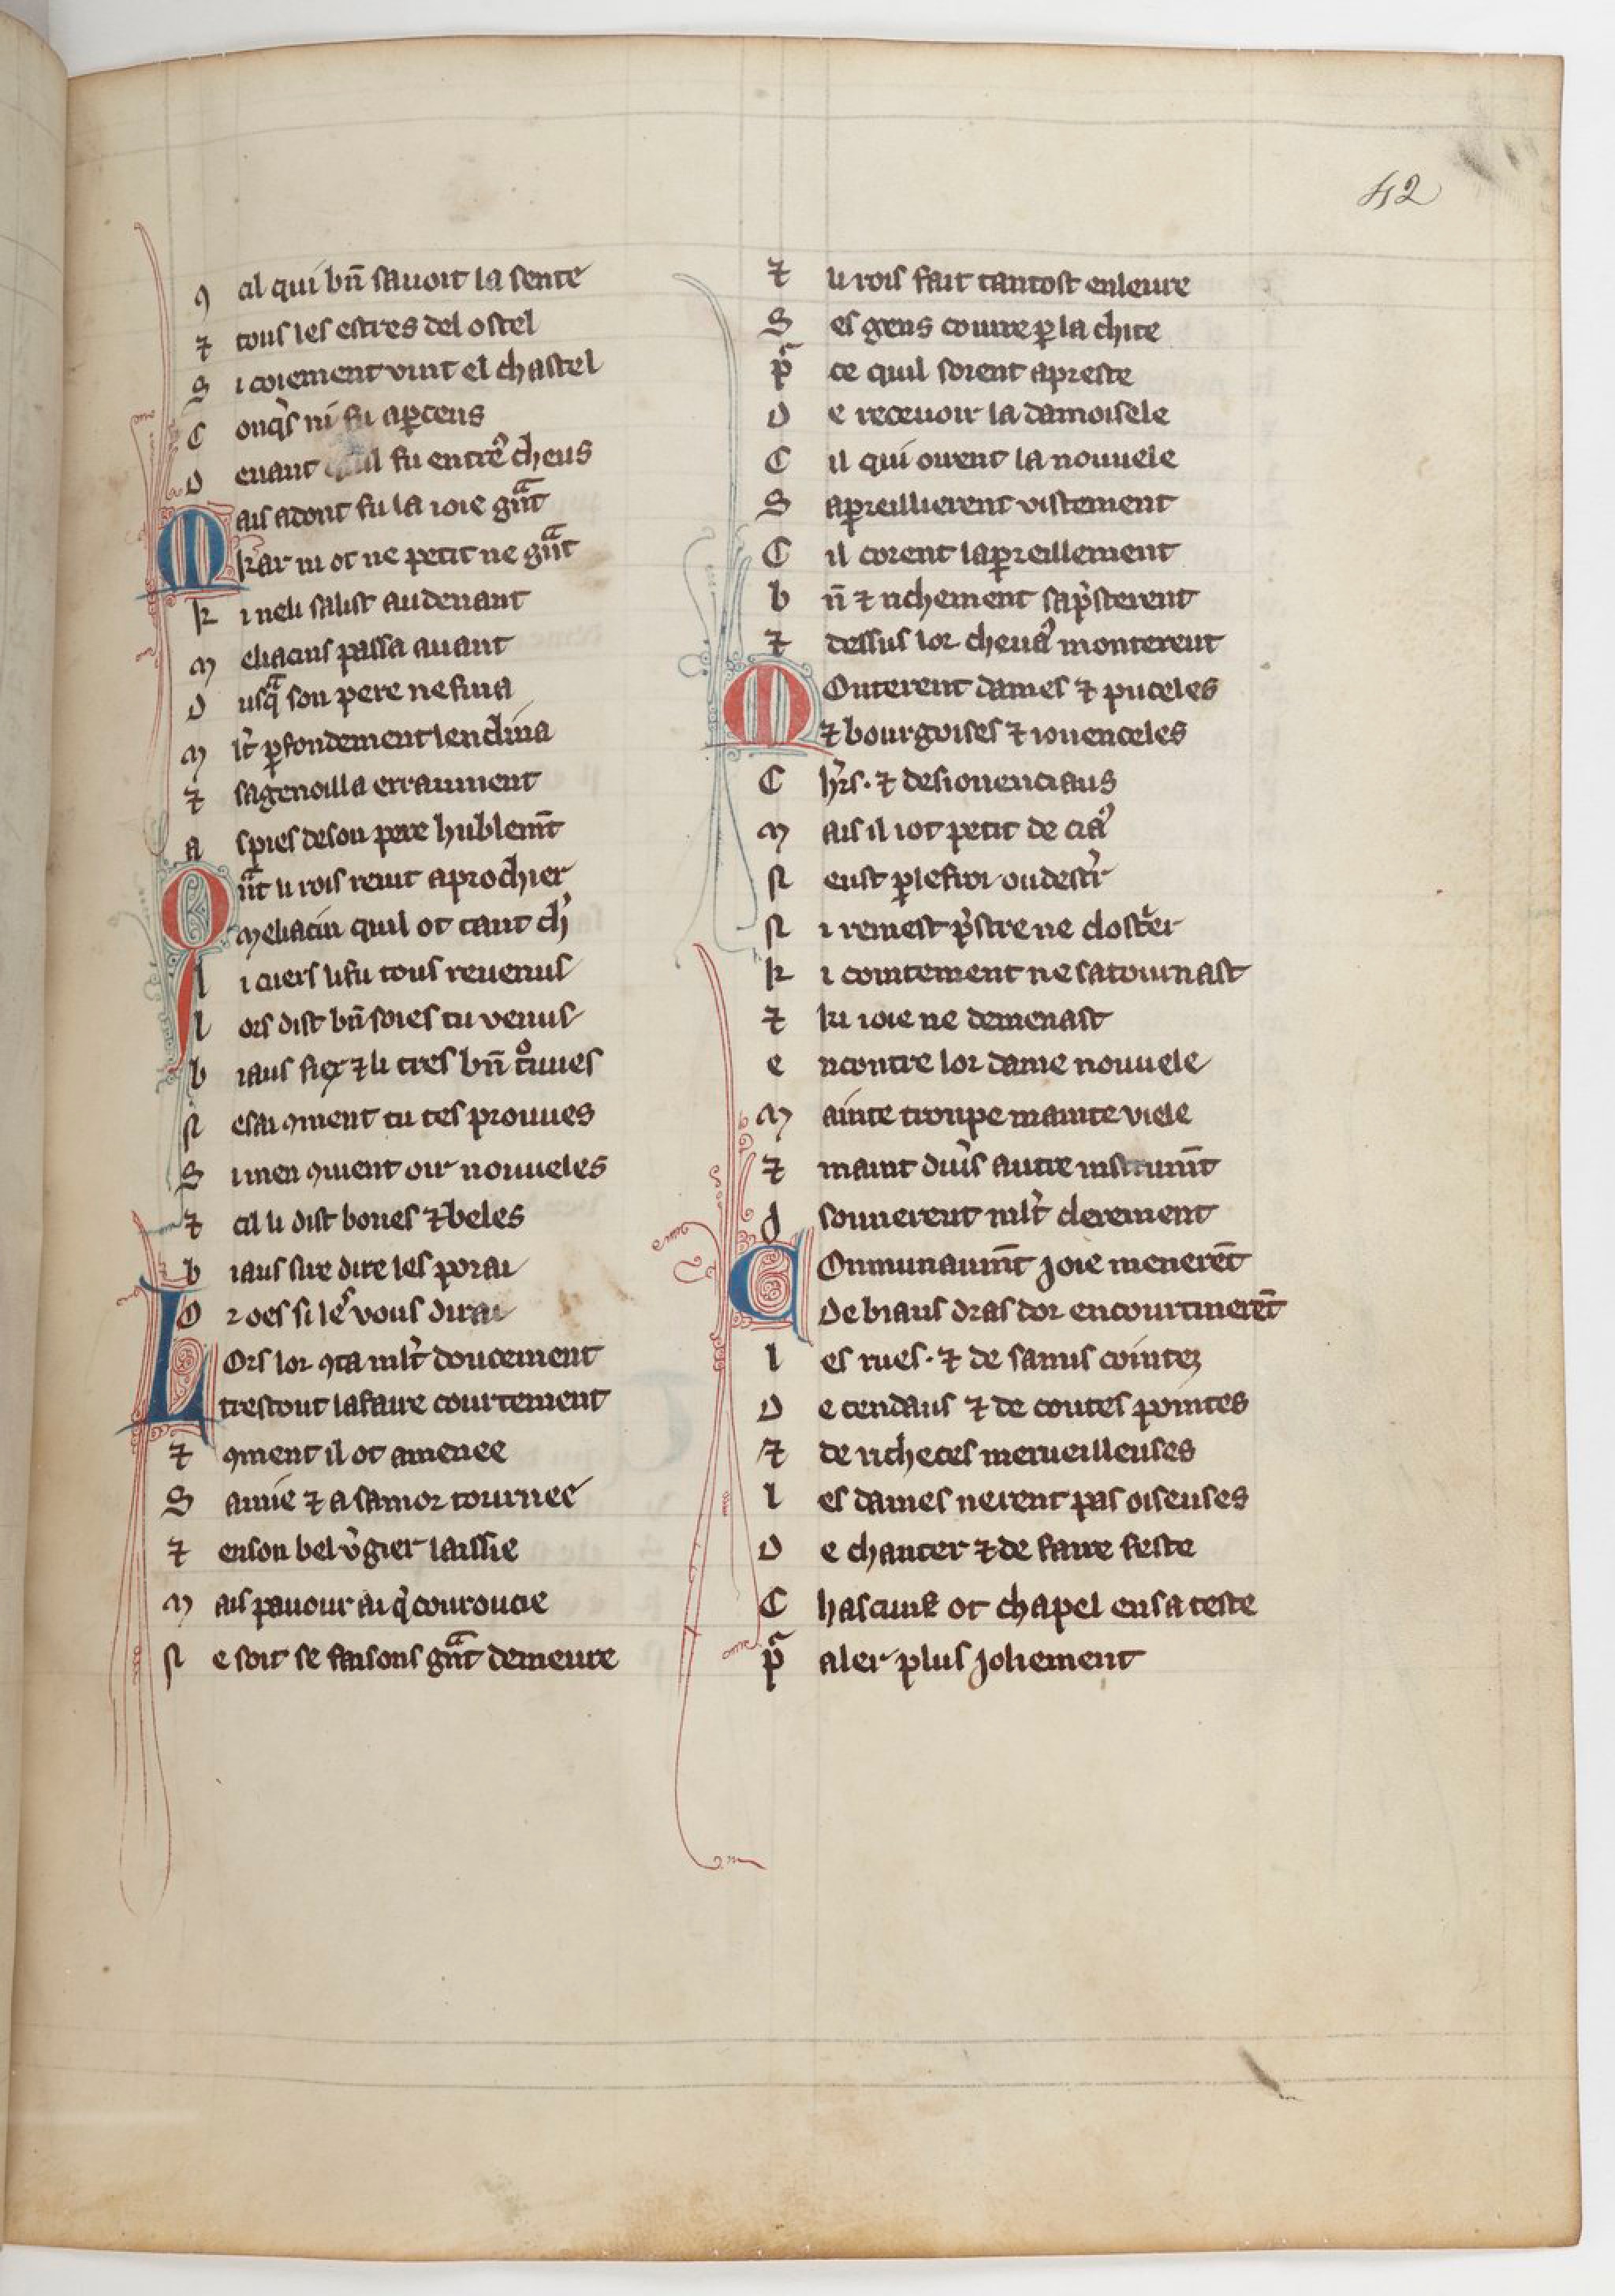 42
9 cil qui bn̄ sauoit la sente
⁊ tous les estres del ostel
S i coiement vint el chastel
C onq̉s ni fu aꝑceus
D euant quil fu entre cheus
M ais adont fu la ioie gn̄t
kar ni ot ne petit ne gn̄t
k i neli salist au deuant
M eliacins passa auant
D usqᵃ son pere ne fina
M lt̉ ꝑfondement lenclina
⁊ sagenoilla erraument
a s pies de son pere hublem̄t
Q n̄t li rois reuit aprochier
Meliacin quil ot tant ch̉
l i cuers li fu tous reuenus
l ors dist bn̄ soies tu venus
b iaus fiex ⁊ li tres bn̄ tͦuues
N e sai ꝯment tu tes prouues
S i men ꝯuient oir nouueles
⁊ cil li dist bones ⁊ beles
b iaus sire dire les porai
O r oes si les vous dirai
L Ors lor ꝯta mlt̉ doucement
trestout lafaire courtement
⁊ ꝯment il ot amenee
S amie ⁊ a samor tournee
⁊ en son bel v̉gier laissie
M ais pauour ai q̉ couroucie
N e soit se faisons gn̄t demeure
⁊ li rois fait tantost enleure
S es gens courre ꝑ la chite
pᵃ ce quil soient apreste
D e receuoir la damoisele
C il qui oirent la nouuele
S apreillierent vistement
C il corent lapreillement
b n̄ ⁊ richement sap̉sterent
⁊ dessus lor cheuaˀ monterent
M Onterent dames ⁊ puceles
⁊ bourgoises ⁊ iouenceles
C hr̉s · ⁊ des iouenciaus
M ais il iot petit de ciaˀ
N eust ꝑlefroi ou destr̉
N i remest p̉stre ne closter
k i cointement ne satournast
⁊ ki ioie ne demenast
e ncontre lor dame nouuele
M ainte troupe mainte viele
⁊ maint diu̓s autre instrum̄t
d sonnerent mlt̉ clerement
C Onmunaum̄t joie menerēt
De biaus dras dor encourtinerēt
l es rues · ⁊ de samis cointeȝ
D e cendaus ⁊ de coutes pointes
⁊ de richeces merueilleuses
l es dames nerent pas oiseuses
D e chanter ⁊ de faire feste
C hascune ot chapel en sa teste
pᵃ aler plus joliement